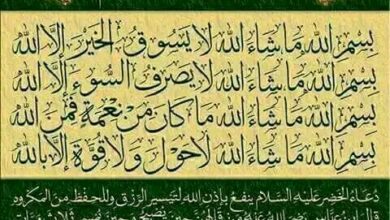 بِسْمِ اللهِ مَا شَاءَ اللهُ لَا يَسُوقُ الْخَيْرَ إِلَّا اللهُ
بِسْمِ اللهِ مَا شَاءَ اللهُ لَا يَصْرِفُ السُّوءَ إِلَّا اللهُ
بِسْمِ اللهِ مَا شَاءَ اللهُ مَا كَانَ مِنْ نِعْمَةٍ فَمِنَ اللهِ
بِسْمِ اللهِ مَا شَاءَ اللهُ لَا حَوْلَ وَلَا قُوَّةَ إِلَّا بِاللهِ
دُعَاءُ الْخَضِرِ عَلَيْهِ السَّلَامُ يَنْفَعُ بِإِذْنِ اللهِ لِتَيْسِيرِ الرِّزْقِ وَلِلْحِفْظِ مِنَ الْمَكْرُوهِ